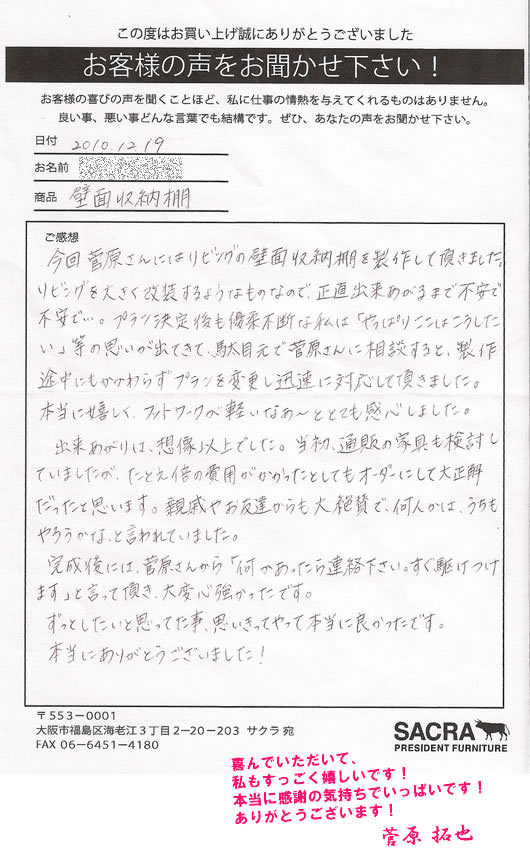 この度はお買い上げ誠にありがとうございました
お客様の声をお聞かせ下さい！
お客様の喜びの声を聞くことほど、私に仕事の情熱を与えてくれるものはありません。
良い事、悪い事どんな言葉でも結構です。ぜひ、あなたの声をお聞かせ下さい。
日付 2010.12.19
お名前
商品 壁面収納棚
ご感想
今回菅原さんにはリビングの壁面収納棚を製作して頂きました。
リビングを大きく改装するようなものなので、正直出来あがるまで不安で
不安で…。プラン決定後も優柔不断な私は「やっぱりここはこうした
い」等の思いが出てきて、駄目元で菅原さんに相談すると、製作
途中にもかかわらずプランを変更し迅速に対応して頂きました。
本当に嬉しく、フットワークが軽いなあ～ととても感心しました。
出来あがりは、想像以上でした。当初、通販の家具も検討し
ていましたが、たとえ倍の費用がかかったとしてもオーダーにして大正解
だったと思います。親戚やお友達からも大絶賛で、何人かは、うちも
やろうかな、と言われていました。
完成後には、菅原さんから「何かあったら連絡下さい。すぐ駆けつけ
ます」と言って頂き、大変心強かったです。
ずっとしたいと思ってた事、思いきってやって本当に良かったです。
本当にありがとうございました！
〒553-0001
大阪市福島区海老江3丁目2-20-203 サクラ 宛
FAX 06-6451-4180
SACRA
PRESIDENT FURNITURE
喜んでいただいて、
私もすっごく嬉しいです！
本当に感謝の気持ちでいっぱいです！
ありがとうございます！
菅原 拓也